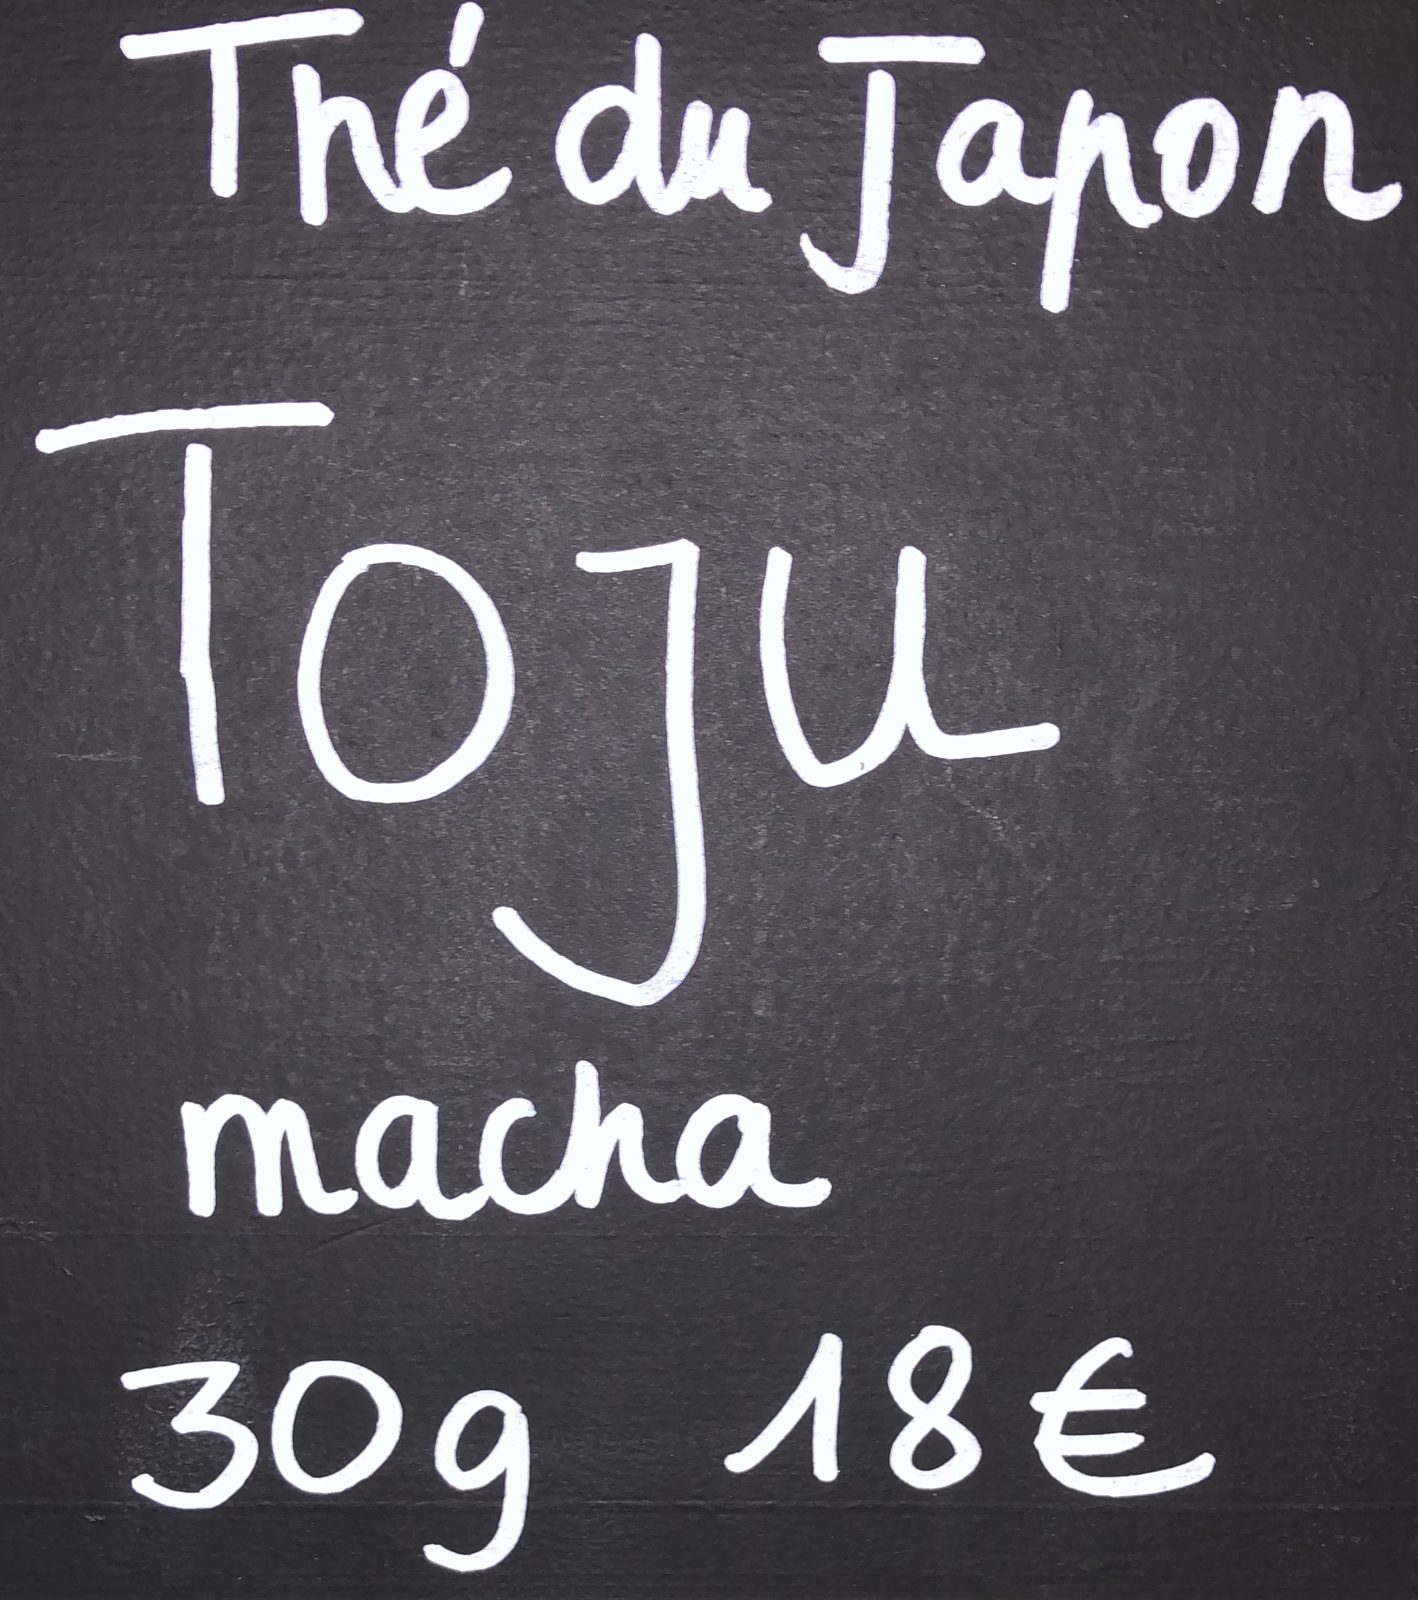 Thé du Japon
Toju
macha
30g 18€